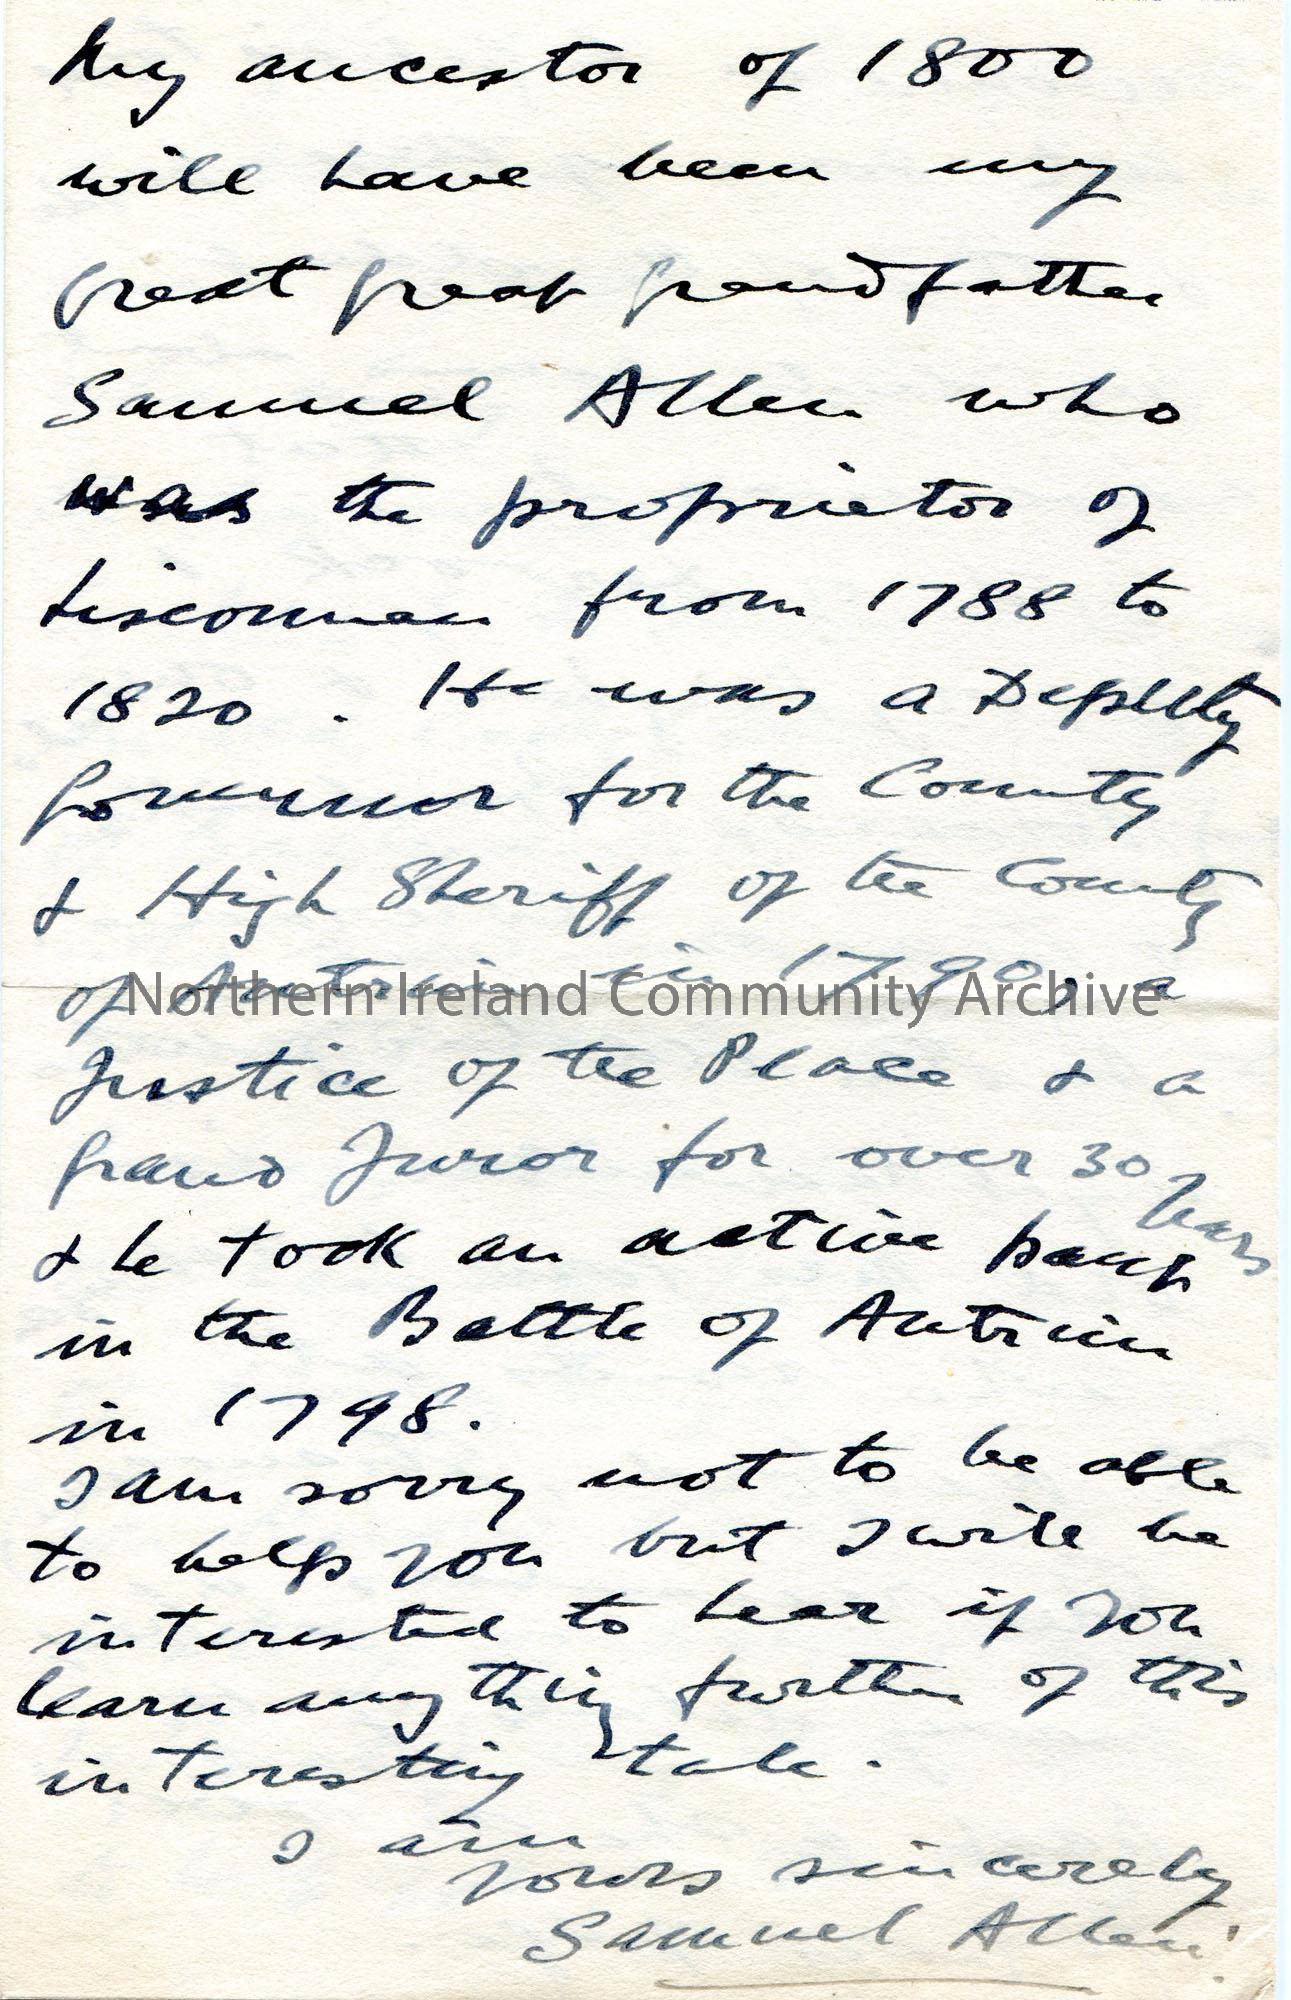 My ancestor of 1800
will have been my
great great grandfather
Samuel Allen who
was the proprietor of
Lisconnan from 1788 to
1820. He was a Deputy
Governor for the County
& High Sheriff of the County
of Antrim in 1790, a
Northern Ireland Community Archive
Justice of the Place & a
Grand Juror for over 30 years
& he took an active part
in the Battle of Antrim
in 1798.
I am sorry not to be able
to help you but I will be
interested to hear if you
learn anything further of this
interesting tale.
I am
yours sincerely
Samuel Allen